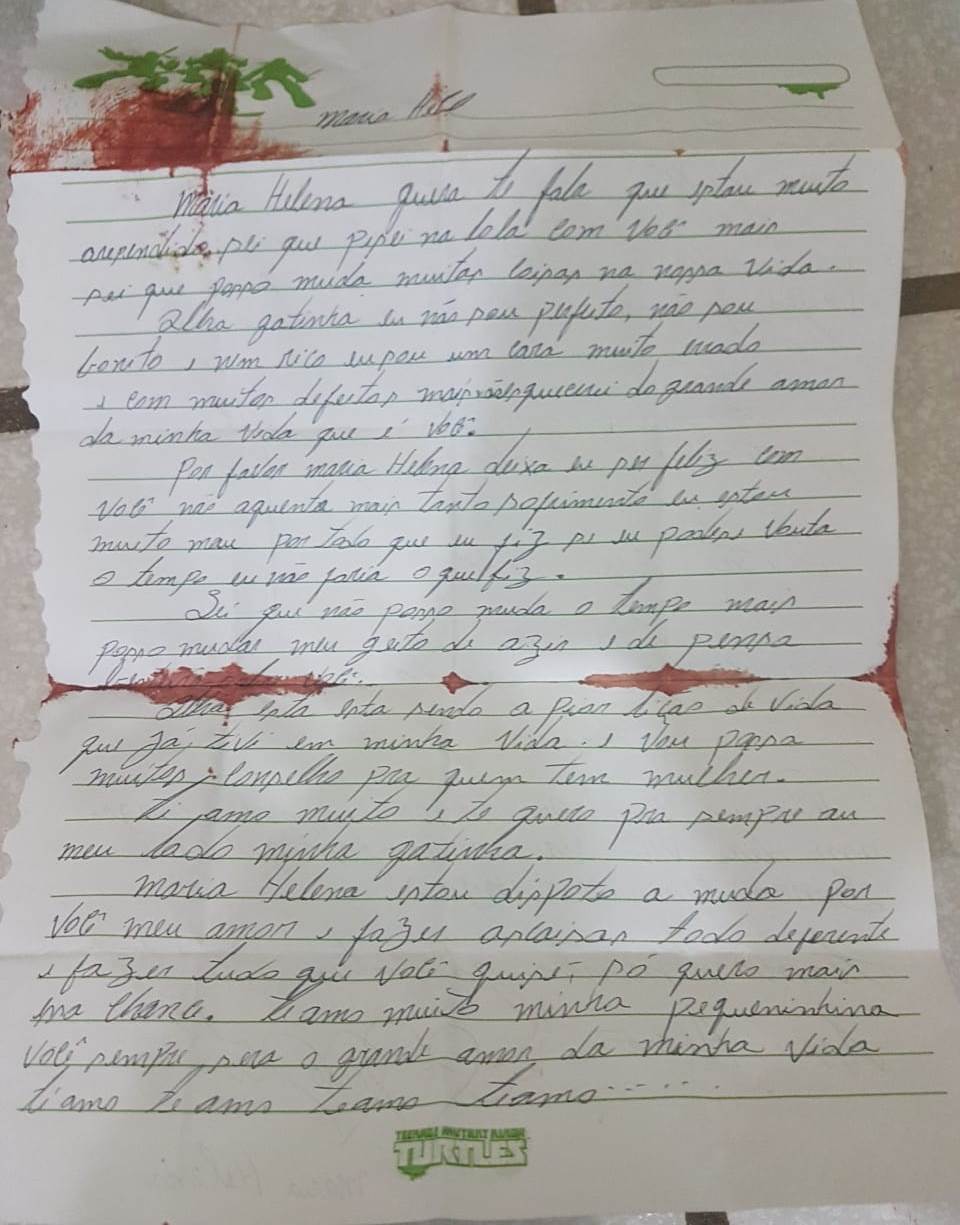 maria
Maria Helena quera te fala que estou muito
arependido. sei que pisei na bola com você mais
sei que posso muda muitas coisas na nossa vida.
Olha gatinha eu não sou perfeito, não sou
bonito, nem rico eu sou um cara muito erado
e com muitos defeitos mais não esqueceru do grande amor
da minha vida que é você.
Por favor maria Helena deixa eu ser feliz com
você não aguento mais tanto sofrimento eu estou
muito mau por todo que eu fiz se eu podese vouta
o tempo eu não faria o que fiz.
Sei que não posso muda o tempo mais
posso mudar meu geito de azir e de pensa
você.
Olha esta esta sendo a pior liçao de vida
que já tive em minha vida. e vou passa
muitos conselho pra quem tem mulher.
te amo muito e te quero pra sempre au
meu lado minha gatinha.
maria Helena estou dispoto a muda por
você meu amor e fazer ascaisas todo deferente
e fazer tudo que você quise, só quero mais
ma chance. te amo muito minha pequenininina
você sempre sera o grande amor da minha vida
ti amo te amo teamo teamo........
TEENAGE MUTANT NINJA
TURTLES